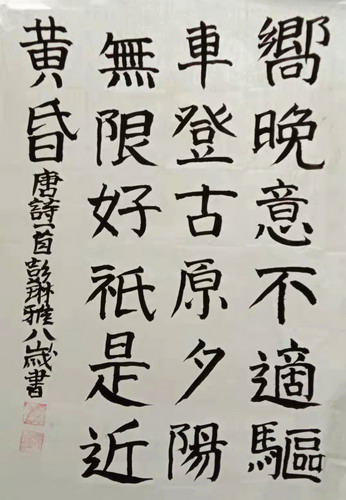 嚮晚意不適驅
車登古原夕陽
無限好祇是近
黄昏
唐詩一首彭琳雅八歲書